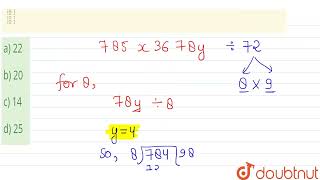 a) 22
b) 20
c) 14
d) 25
785 x 36 78y ÷ 72
for 8,
8 x 9
78y ÷ 8
y = 4
so, 8 784 98
72
doubtnut